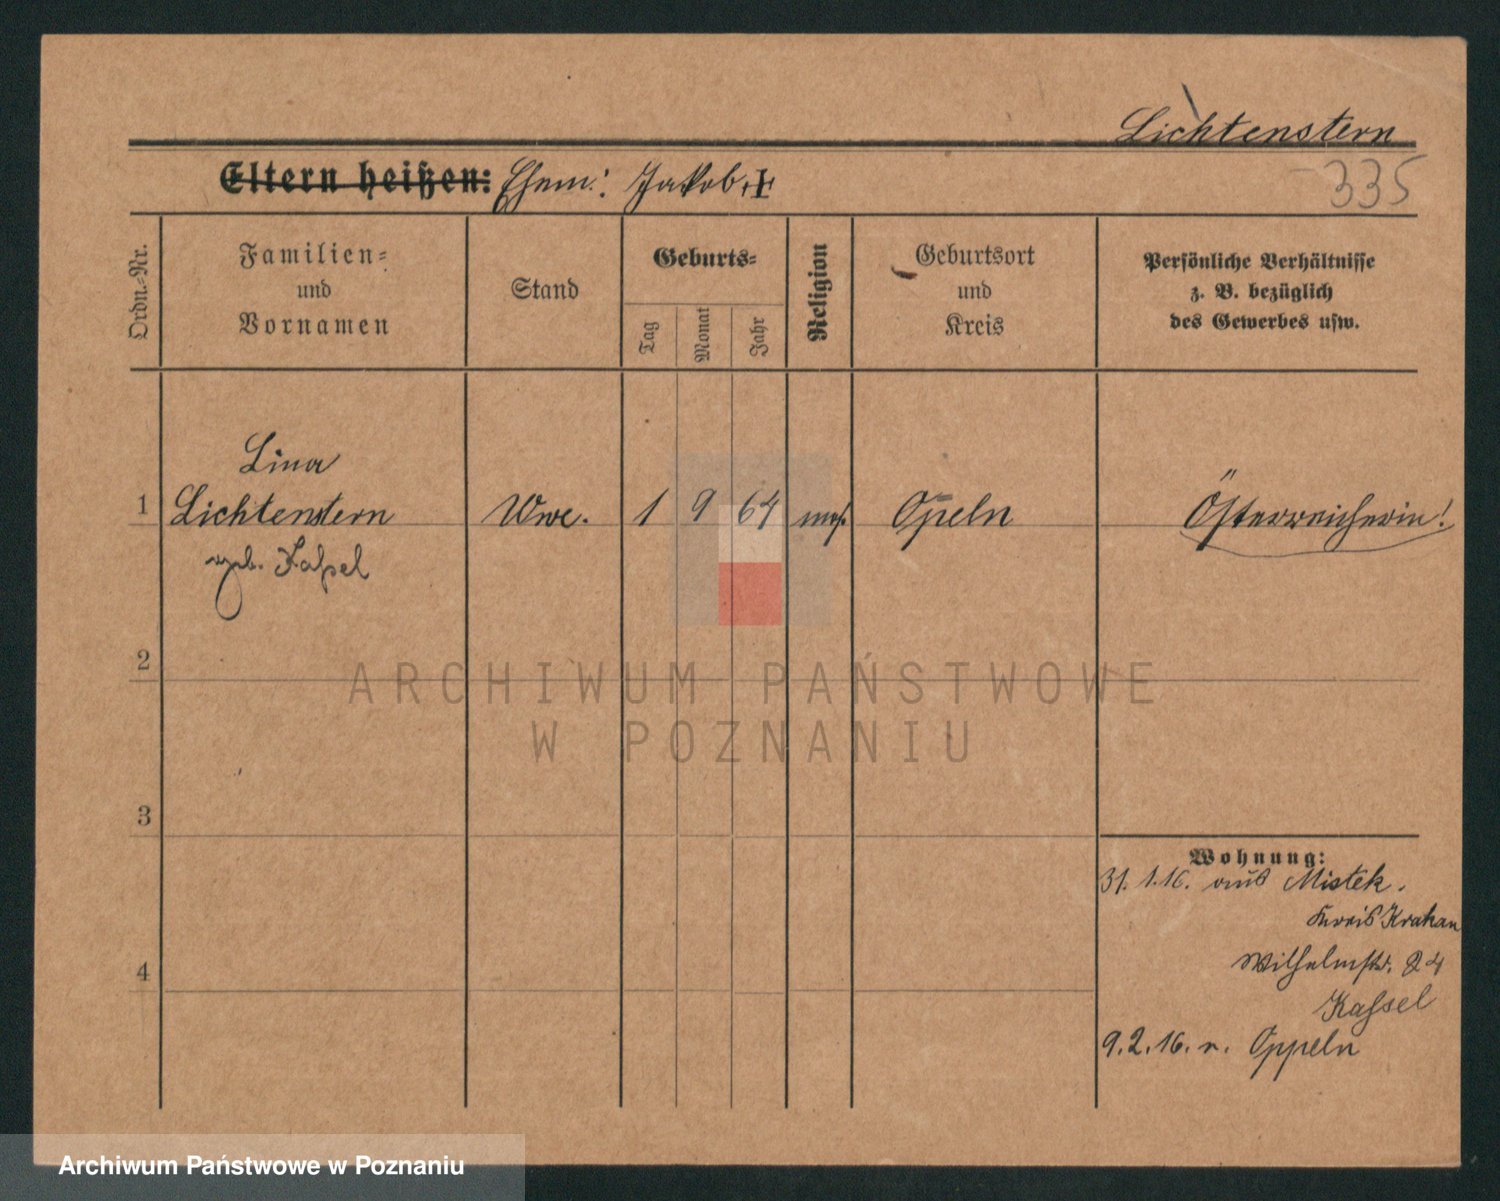 Lichtenstern
335
Eltern heißen: Ehem.: Jakob, ✝
Ordn.-Nr.
Familien-
und
Vornamen
Stand
Geburts-
Tag
Monat
Jahr
Religion
Geburtsort
und
Kreis
Persönliche Verhältnisse
z. B. bezüglich
des Gewerbes usw.
Lina
1 Lichtenstern Wwe. 1 9 64 mos. Opeln Österreicherin!
geb. Kaßel
2
ARCHIWUM PAŃSTWOWE
W POZNANIU
3
Wohnung:
31.1.16. aus Mistek.
Kreis Krakau
Wilhelmstr. 24
Kassel
4
9.2.16. n. Oppeln
Archiwum Państwowe w Poznaniu